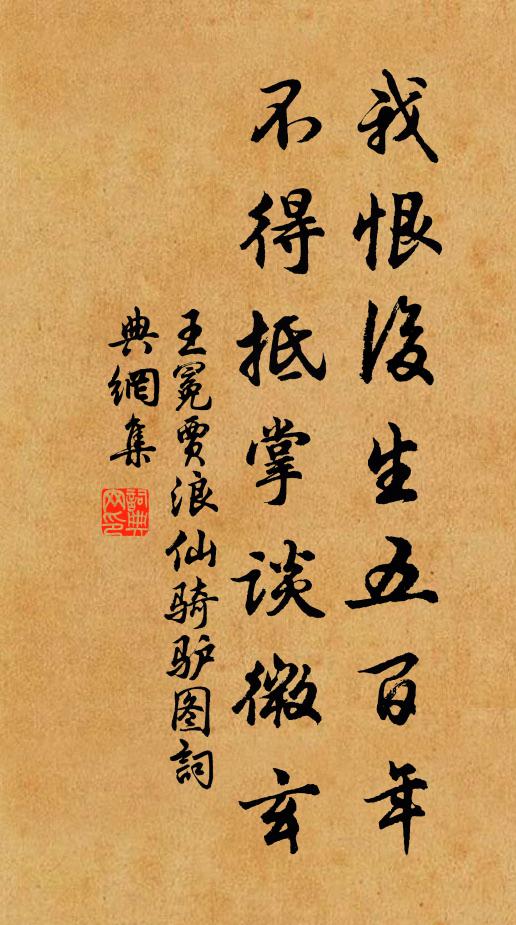 我恨後生五百年
不得抵掌談微玄
王冕贾浪仙骑驴图詞
典網集
詞典网印